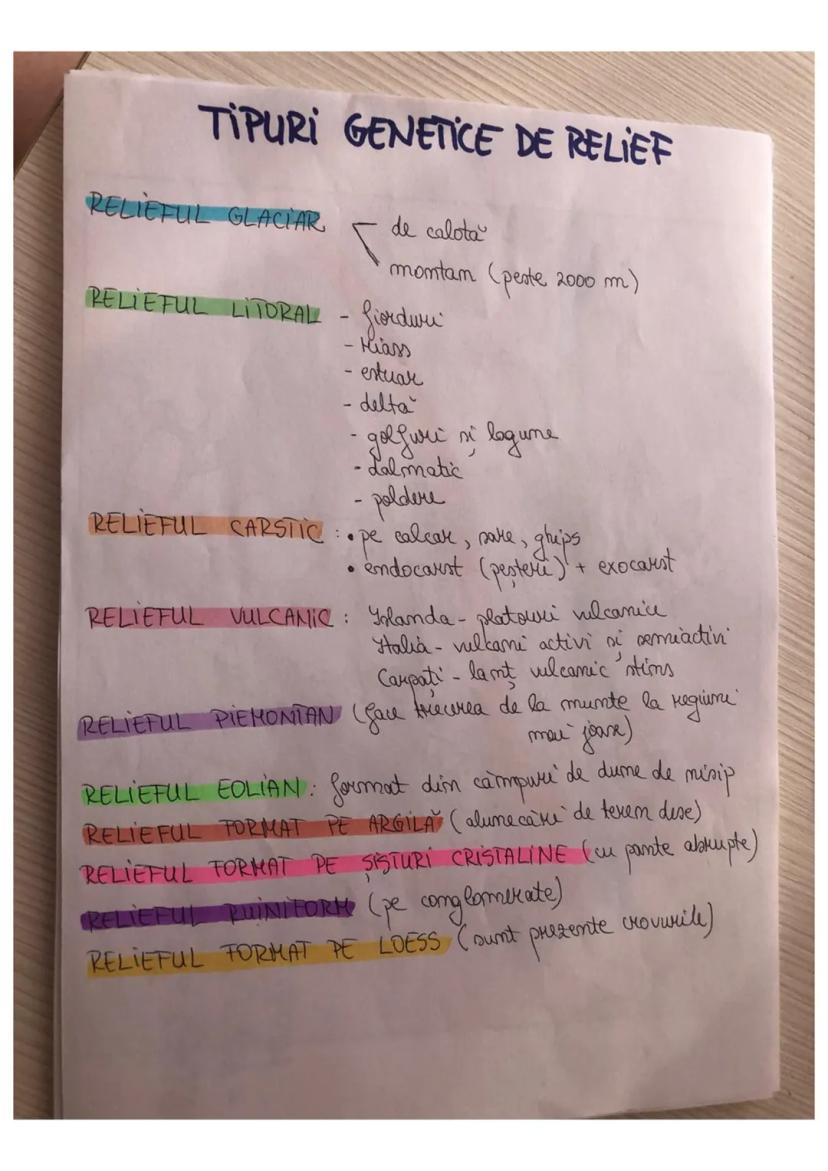 TIPURI GENETICE DE RELIEF
RELIEFUL GLACIAR
de calotă
montan (peste 2000 m)
RELIEFUL LITORAL - fiorduri
- riass
- estuar
- deltă
- golfuri și lagune
- dalmatic
- poldere
RELIEFUL CARSTIC : • pe calcar, sare, ghips
• endocarst (peșteri) + exocarst
RELIEFUL VULCANIC : Islanda - platouri vulcanice
Italia - vulcani activi și semiactivi
Carpați - lanț vulcanic stins
RELIEFUL PIEMONTAN (face trecerea de la munte la regiuni
mai joase)
RELIEFUL EOLIAN : format din câmpuri de dune de nisip
RELIEFUL FORMAT PE ARGILĂ (alunecări de teren dese)
RELIEFUL FORMAT PE ȘISTURI CRISTALINE (cu pante abrupte)
RELIEFUL RUINIFORM (pe conglomerate)
RELIEFUL FORMAT PE LOESS (sunt prezente crovurile)